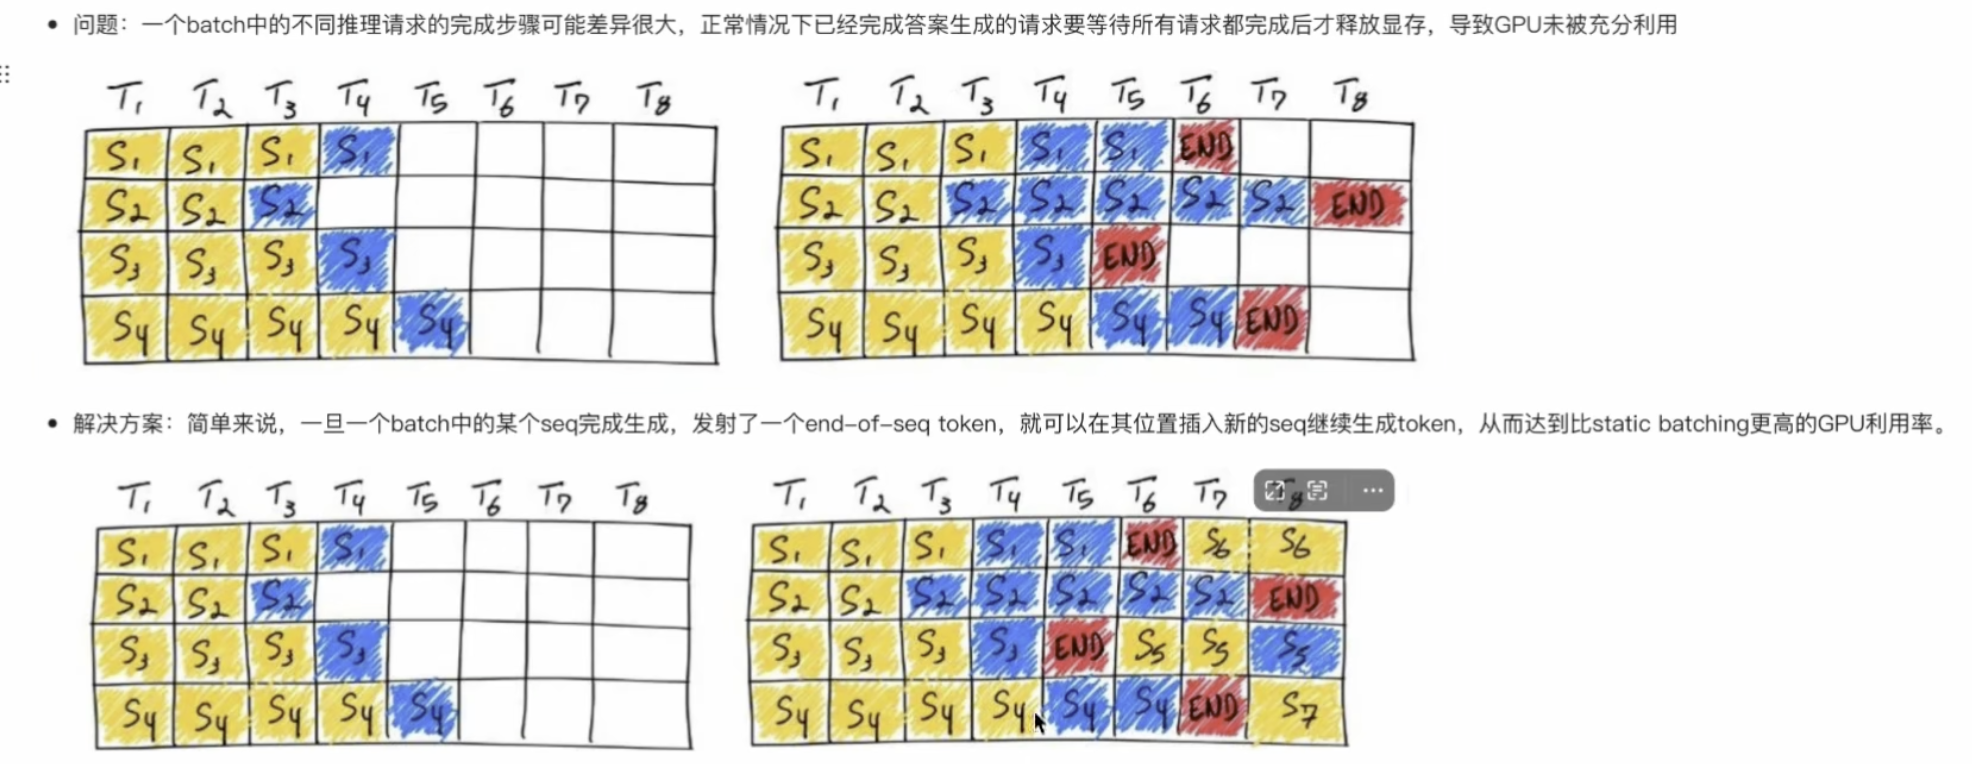 问题：一个batch中的不同推理请求的完成步骤可能差异很大，正常情况下已经完成答案生成的请求要等待所有请求都完成后才释放显存，导致GPU未被充分利用
T1 T2 T3 T4 T5 T6 T7 T8
S1 S1 S1 S1
S2 S2 S2
S3 S3 S3 S3
S4 S4 S4 S4 S4
T1 T2 T3 T4 T5 T6 T7 T8
S1 S1 S1 S1 S1 END
S2 S2 S2 S2 S2 S2 S2 END
S3 S3 S3 S3 END
S4 S4 S4 S4 S4 S4 END
解决方案：简单来说，一旦一个batch中的某个seq完成生成，发射了一个end-of-seq token，就可以在其位置插入新的seq继续生成token，从而达到比static batching更高的GPU利用率。
T1 T2 T3 T4 T5 T6 T7 T8
S1 S1 S1 S1
S2 S2 S2
S3 S3 S3 S3
S4 S4 S4 S4 S4
T1 T2 T3 T4 T5 T6 T7 T8
S1 S1 S1 S1 S1 END S6 S6
S2 S2 S2 S2 S2 S2 S2 END
S3 S3 S3 S3 END S5 S5 S5
S4 S4 S4 S4 S4 S4 END S7